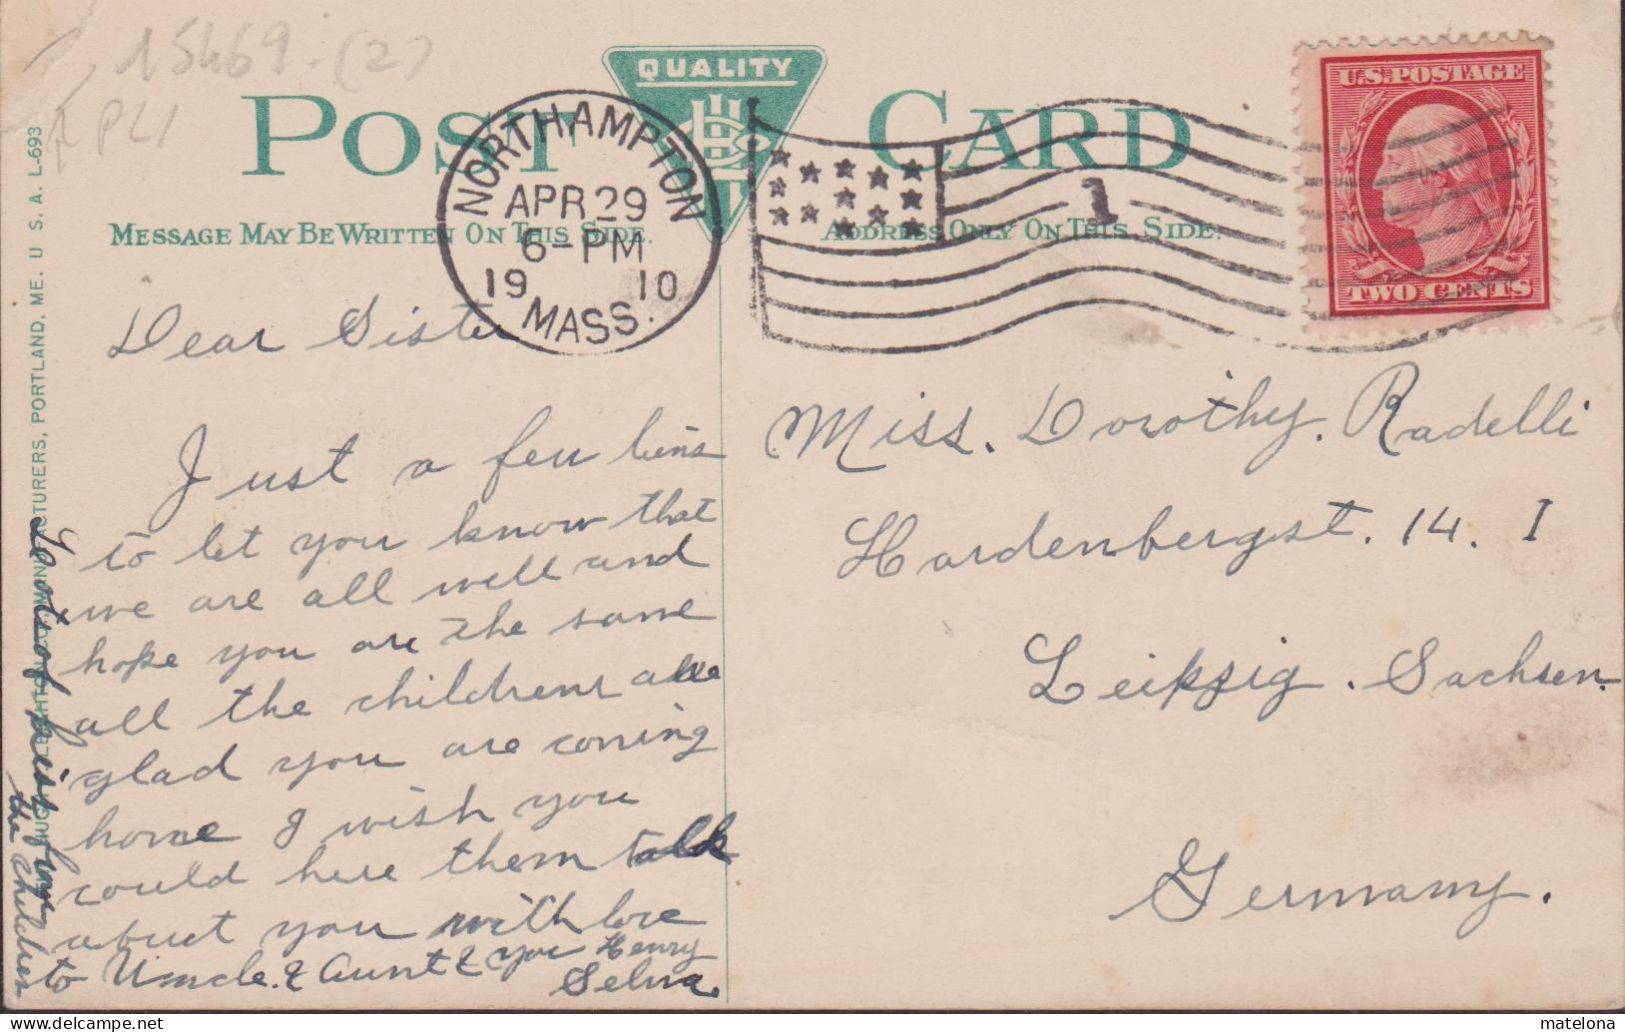 15469.(2)
QUALITY
POST CARD
MESSAGE MAY BE WRITTEN ON THIS SIDE.
ADDRESS ONLY ON THIS SIDE.
NORTHAMPTON
APR 29
6-PM
19 10
MASS.
1
U.S. POSTAGE
TWO CENTS
Dear Sister
Just a few lins
to let you know that
we are all well and
hope you are the same
all the childrens are
glad you are coming
home I wish you
could here them talk
about you with love
to Uncle. & Aunt & you Henry
Selma
Lots of kiss from
the Children
Miss. Dorothy. Radelli
Hardenbergst. 14. I
Leipzig. Sachsen.
Germany.
HUGH C. LEIGHTON CO., MANUFACTURERS, PORTLAND, ME. U S. A. L-693
matelona